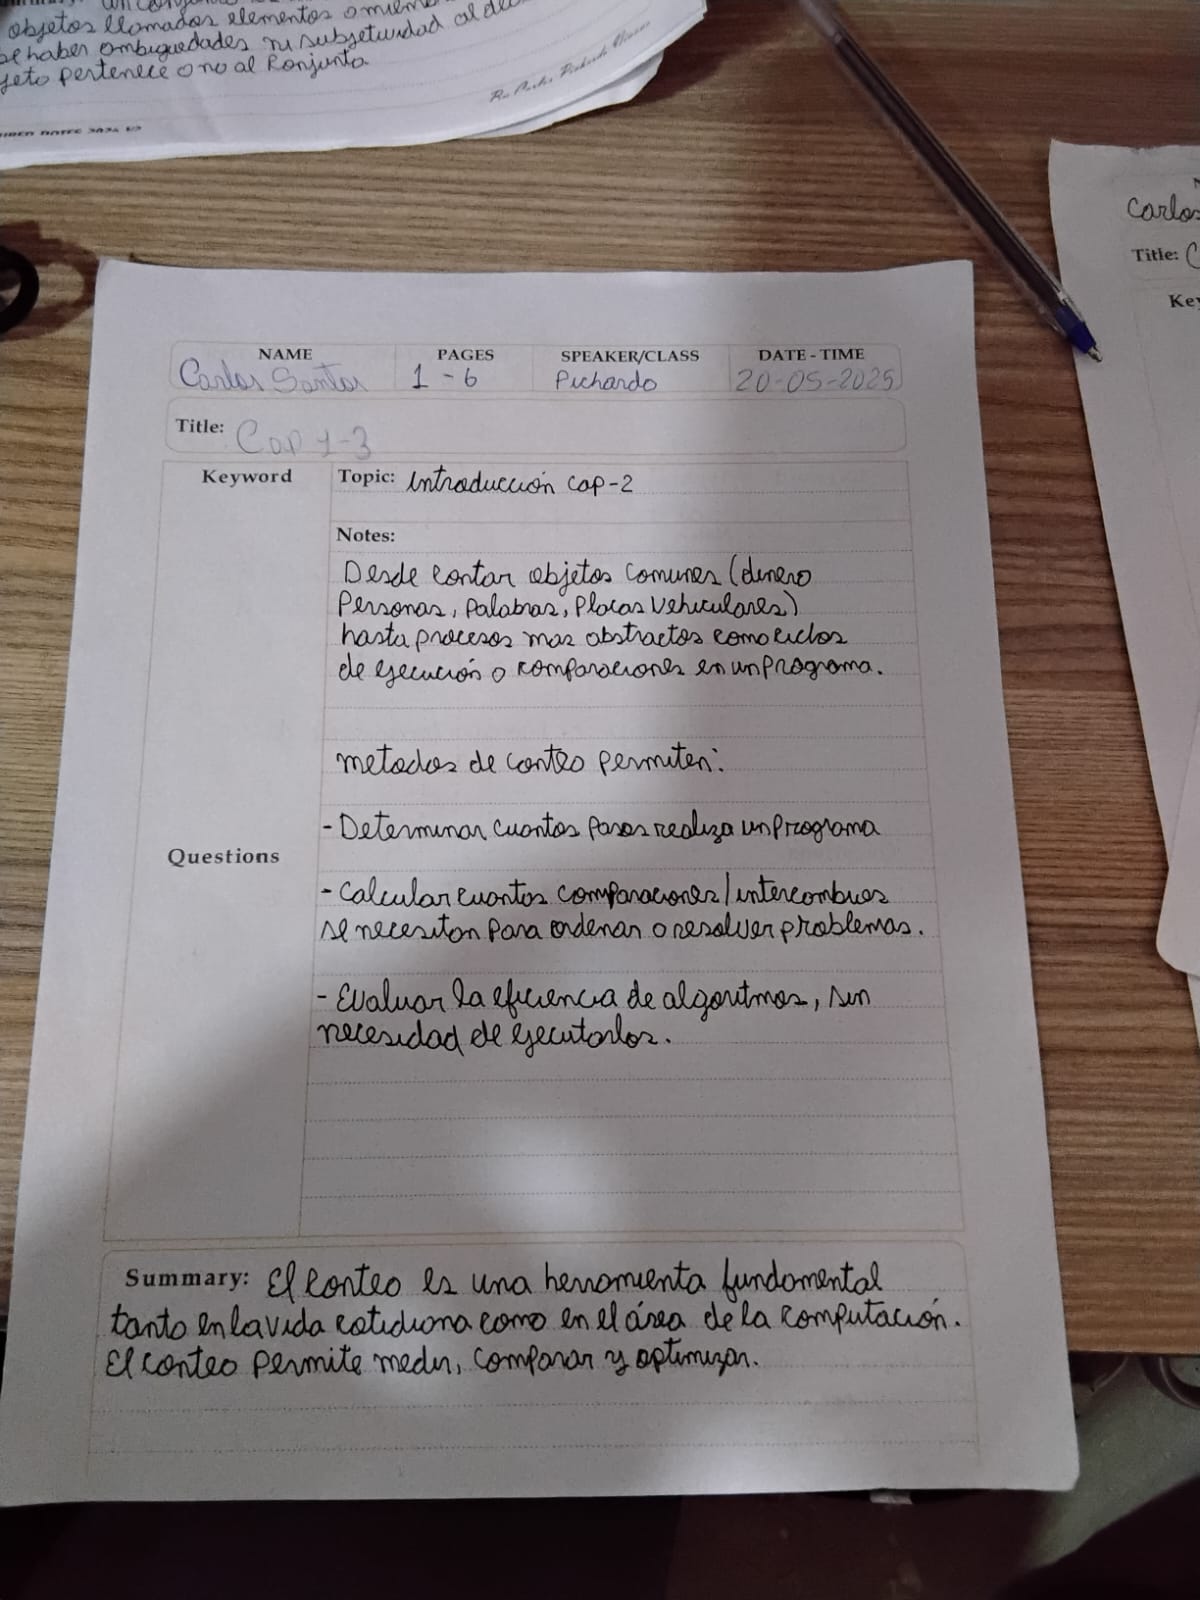 objetos llamados elementos o miem
se haber ambiguedades ni subjetividad al de
jeto pertenece o no al Conjunto
NAME
PAGES
SPEAKER/CLASS
DATE - TIME
Carlos Santos
1 - 6
Pichardo
20-05-2025
Title: Cap 1-3
Keyword
Topic: Introducción cap-2
Notes:
Desde contar objetos comunes (dinero
Personas, Palabras, Placas Vehiculares)
hasta procesos mas abstractos como ciclos
de ejecución o comparaciones en un Programa.
metodos de conteo permiten:
- Determinar cuantos pasos realiza un Programa
Questions
- Calcular cuantos comparaciones/intercambios
se necesitan para ordenar o resolver problemas.
- Evaluar la eficiencia de algoritmos, sin
necesidad de ejecutarlos.
Summary: El conteo es una herramienta fundamental
tanto en la vida cotidiana como en el área de la computación.
El conteo permite medir, comparar y optimizar.
Carlos
Title: C
Key